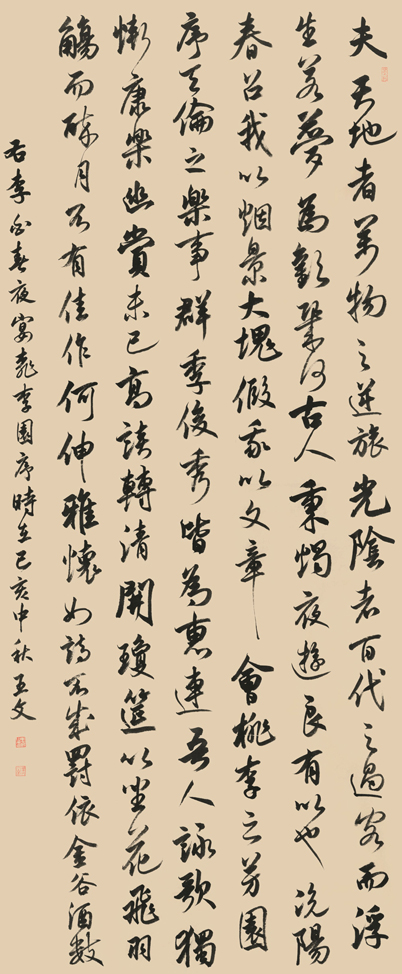 夫天地者萬物之逆旅光陰者百代之過客而浮
生若夢為歡幾何古人秉燭夜遊良有以也況陽
春召我以烟景大塊假我以文章會桃李之芳園
序天倫之樂事群季俊秀皆為惠連吾人詠歌獨
慚康樂幽賞未已高談轉清開瓊筵以坐花飛羽
觴而醉月不有佳作何伸雅懷如詩不成罰依金谷酒數
右李白春夜宴桃李園序時在己亥中秋文